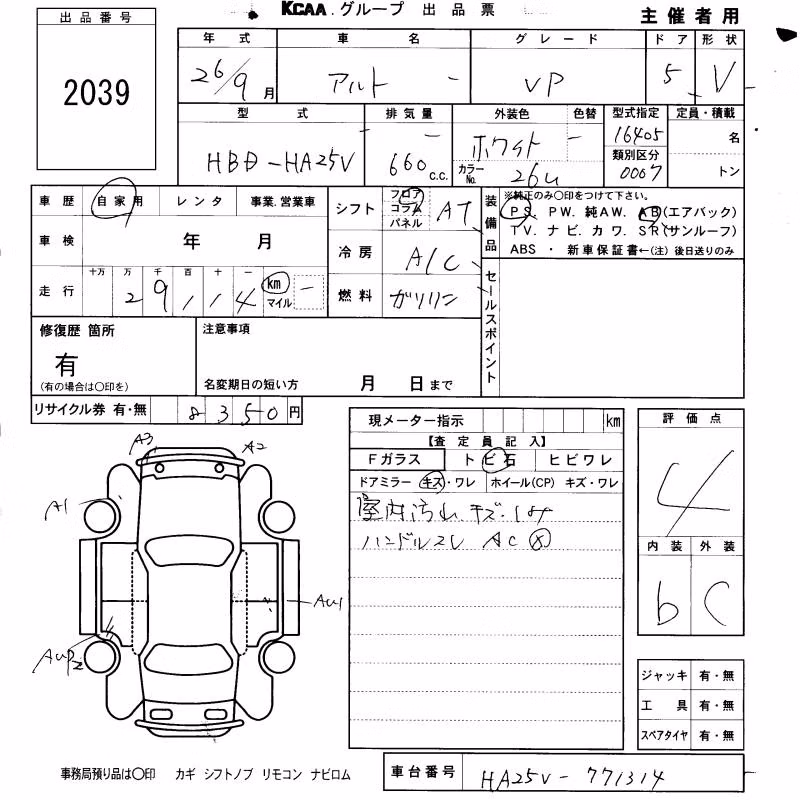 出品番号
2039
KCAA.グループ 出品票
主催者用
年式 車名 グレード ドア 形状
26/9月 アルト VP 5 V
型式 排気量 外装色 色替 型式指定 定員・積載
HBD-HA25V 660 c.c. ホワイト 16405 名
カラーNo. 26U 類別区分 0067 トン
車歴 自家用 レンタ 事業.営業車
シフト フロア コラム パネル AT
装備品 ※純正のみ〇印をつけて下さい。
PS. PW. 純AW. AB(エアバック)
TV. ナビ. カワ. SR(サンルーフ)
ABS ・ 新車保証書←(注) 後日送りのみ
車検 年 月
冷房 A/C
セールスポイント
走行 十万 万 千 百 十 一
29114 km マイル
燃料 ガソリン
修復歴 箇所
有
(有の場合は〇印を)
注意事項
名変期日の短い方 月 日まで
リサイクル券 有・無 8350円
現メーター指示 km
【査定員記入】
Fガラス トビ石 ヒビワレ
ドアミラー キズ・ワレ ホイール(CP) キズ・ワレ
室内汚れ キズ・
ハンドルスレ AC
評価点
4
内装 外装
b C
A3 A2
A1
AU1
AUP2
ジャッキ 有・無
工具 有・無
スペアタイヤ 有・無
事務局預り品は〇印 カギ シフトノブ リモコン ナビロム
車台番号 HA25V-771314